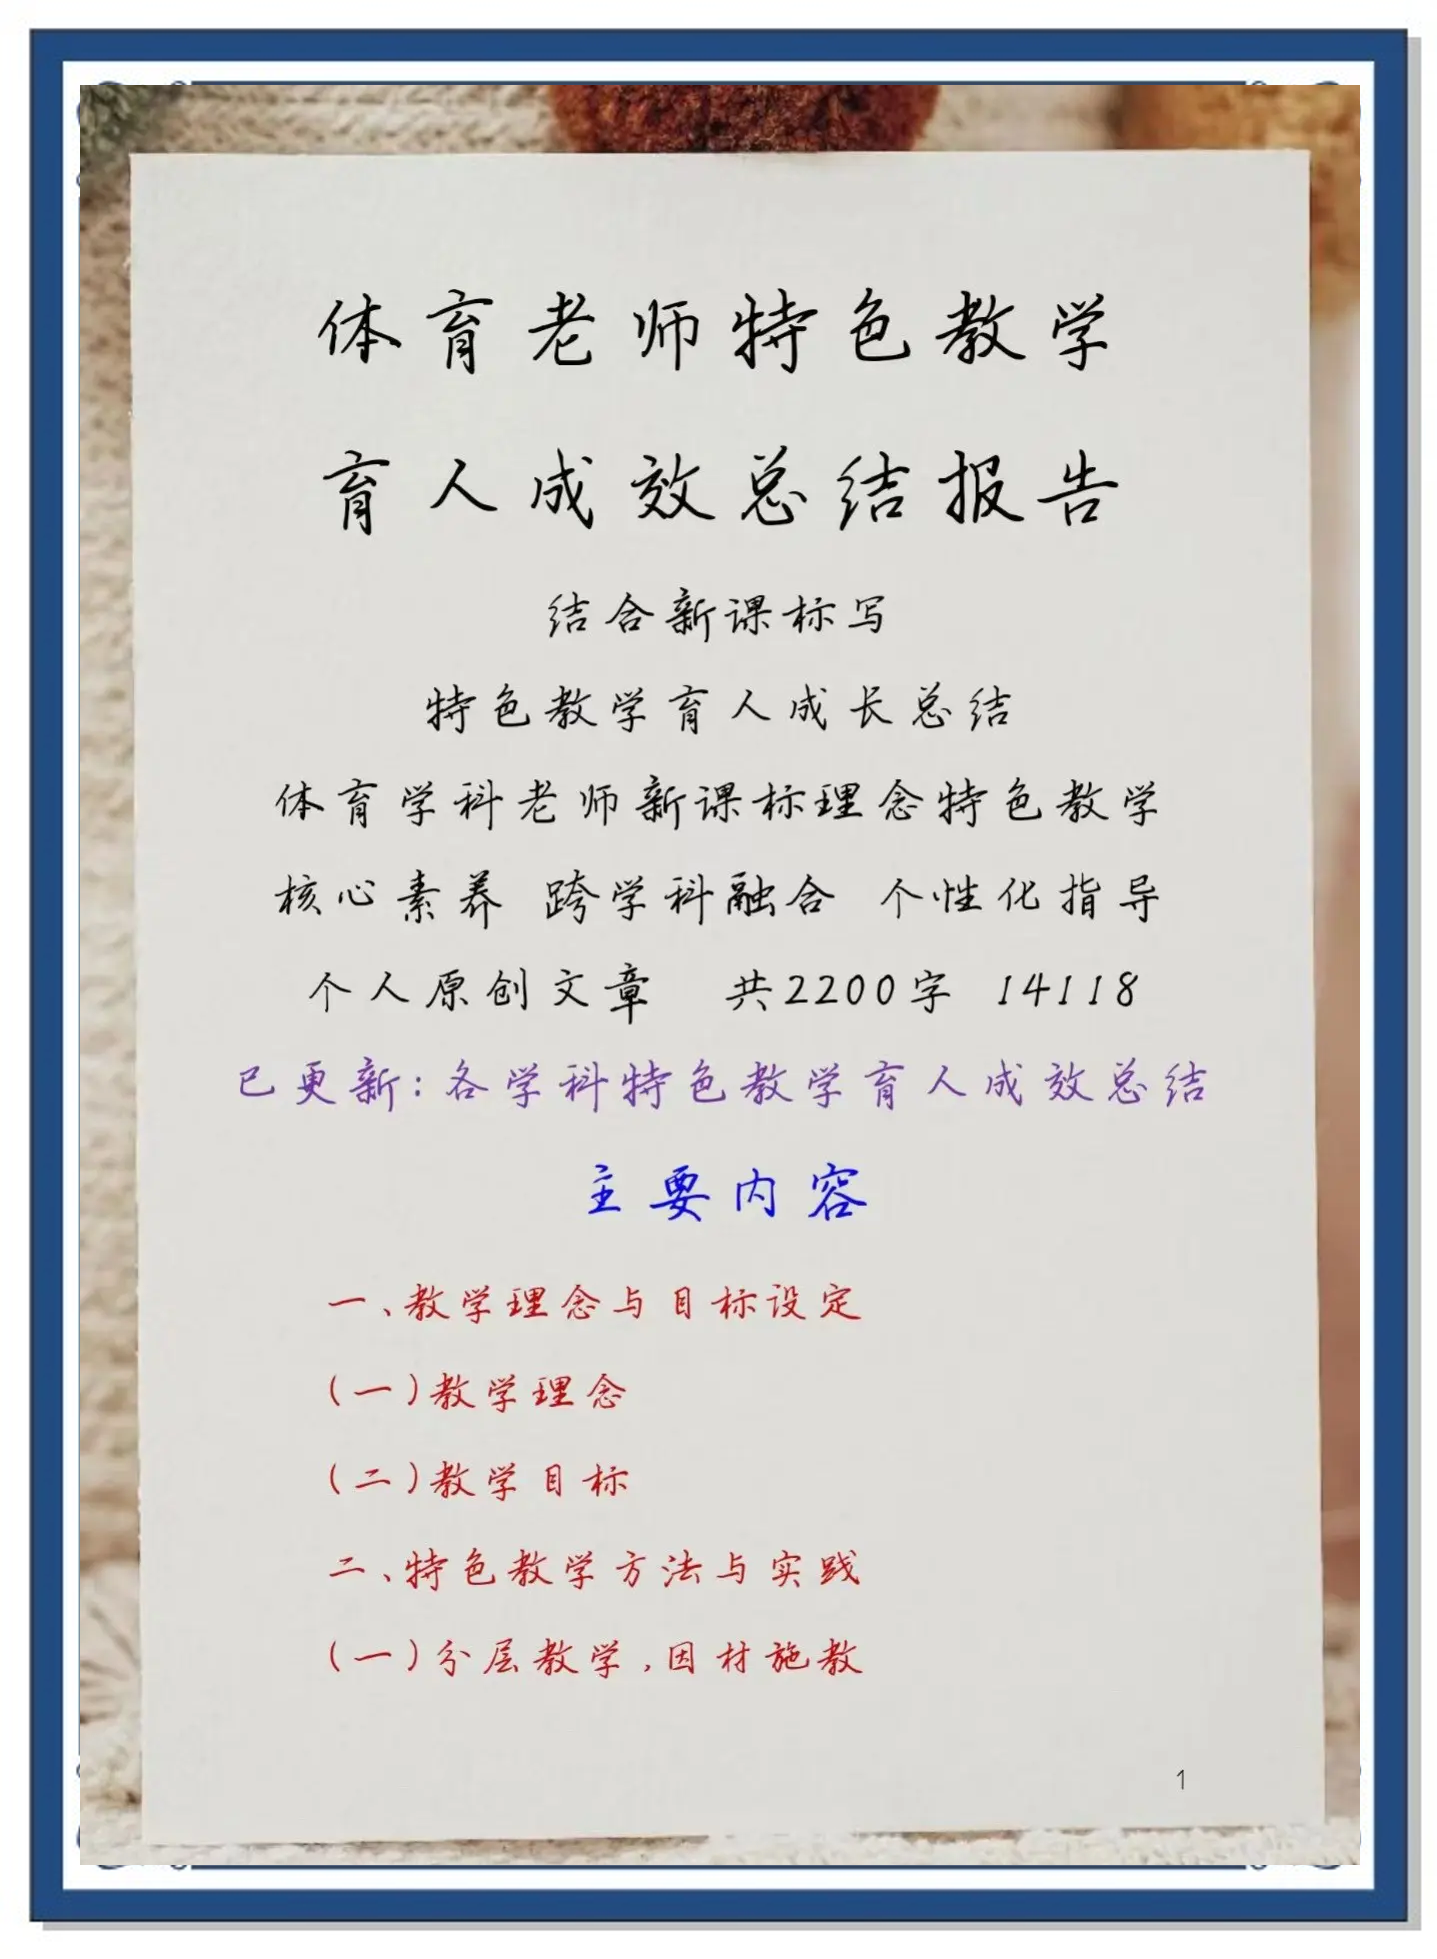 体育老师特色教学
育人成效总结报告
结合新课标写
特色教学育人成长总结
体育学科老师新课标理念特色教学
核心素养 跨学科融合 个性化指导
个人原创文章 共2200字 14118
已更新:各学科特色教学育人成效总结
主要内容
一、教学理念与目标设定
(一)教学理念
(二)教学目标
二、特色教学方法与实践
(一)分层教学,因材施教
1